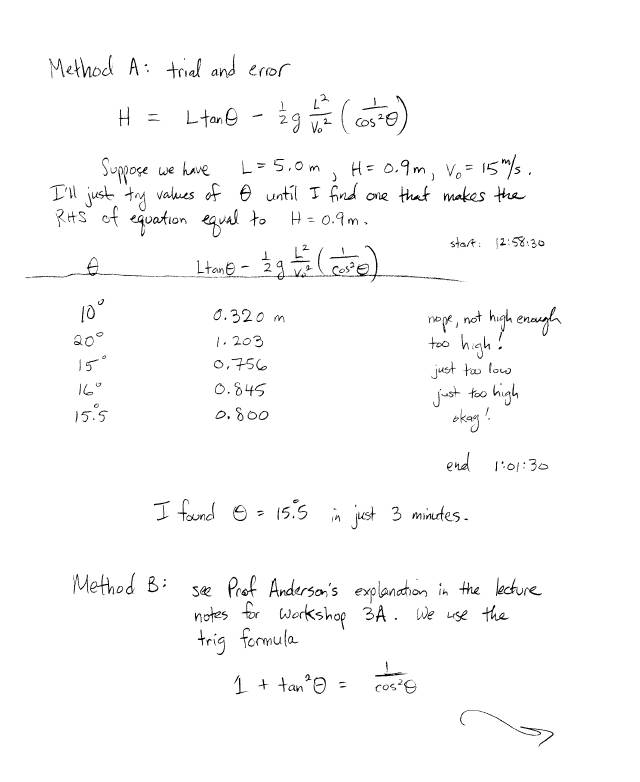 Method A: trial and error
H = L tanθ - 1/2 g L²/V₀² (1/cos²θ)
Suppose we have L = 5.0 m, H = 0.9 m, V₀ = 15 m/s.
I'll just try values of θ until I find one that makes the
RHS of equation equal to H = 0.9 m.
start: 12:58:30
θ L tanθ - 1/2 g L²/V₀² (1/cos²θ)
10° 0.320 m nope, not high enough
20° 1.203 too high!
15° 0.756 just too low
16° 0.845 just too high
15.5° 0.800 okay!
end 1:01:30
I found θ = 15.5° in just 3 minutes.
Method B: see Prof Anderson's explanation in the lecture
notes for Workshop 3A. We use the
trig formula
1 + tan²θ = 1/cos²θ